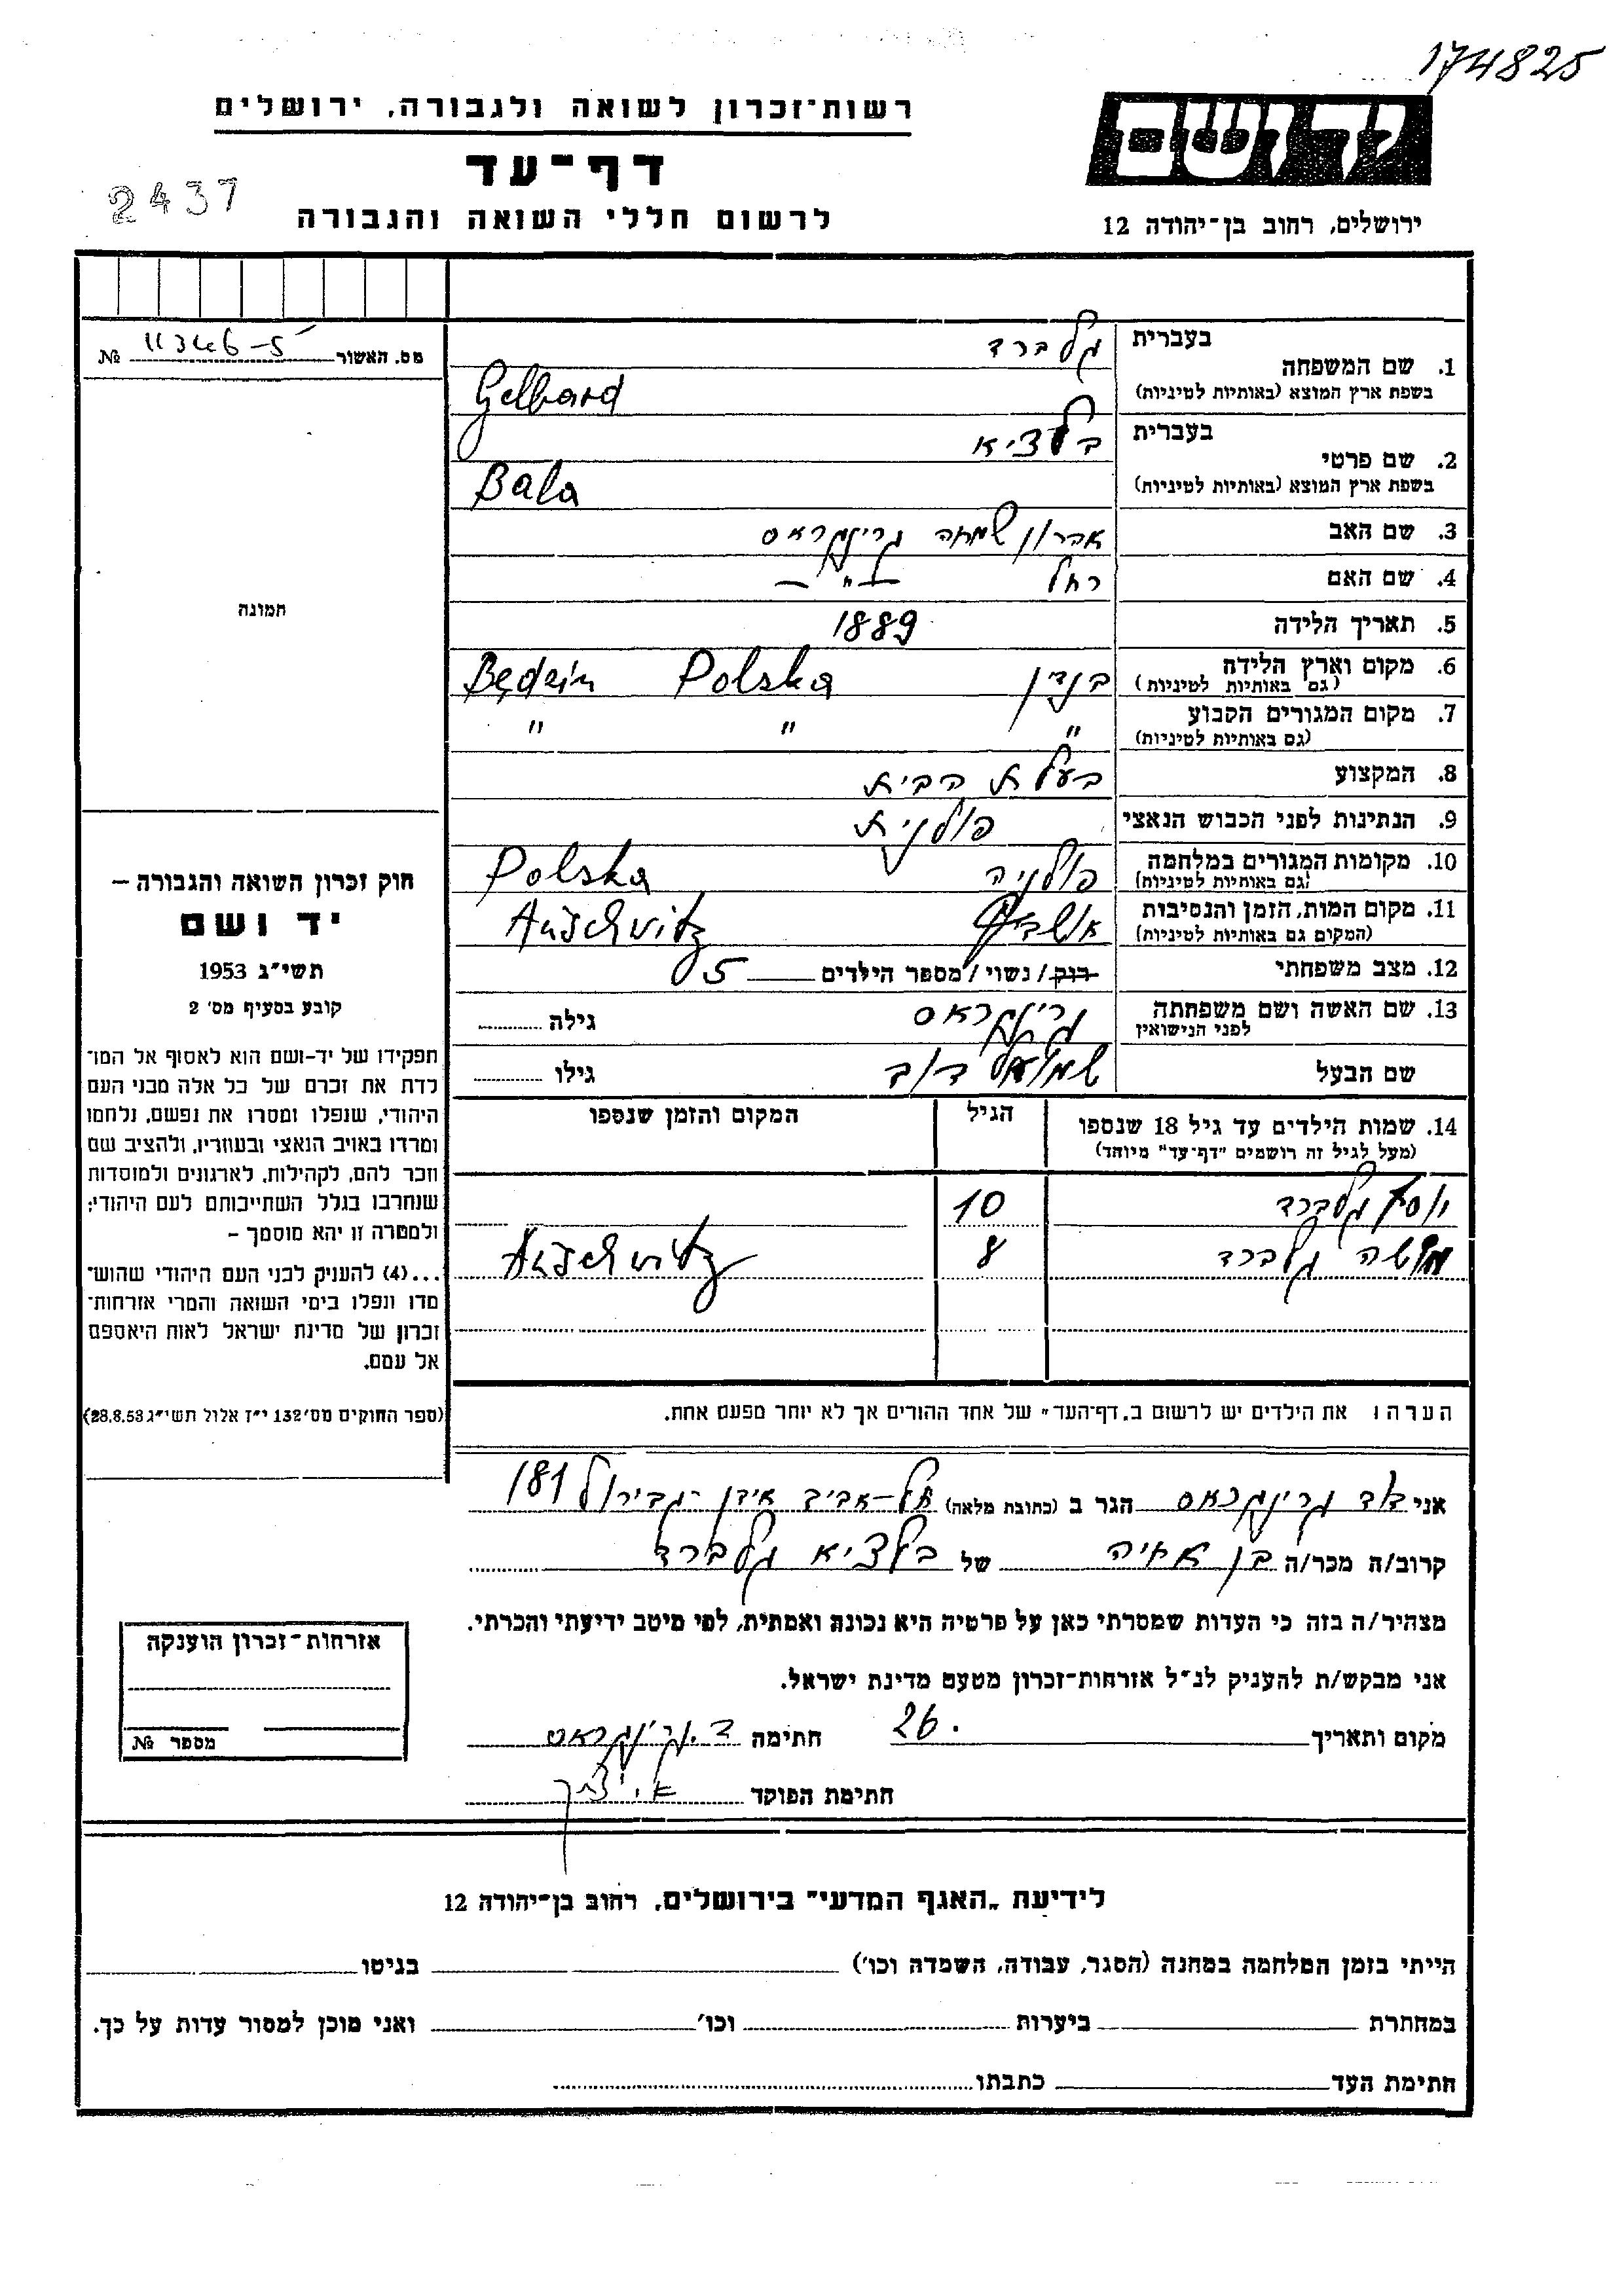 174825
רשות־זכרון לשואה ולגבורה, ירושלים
יד ושם
דף־עד
2437
לרשום חללי השואה והגבורה
ירושלים, רחוב בן־יהודה 12
מס. האשור 11346-5 №
תמונה
חוק זכרון השואה והגבורה –
יד ושם
תשי״ג 1953
קובע בסעיף מס׳ 2
תפקידו של יד-ושם הוא לאסוף אל המו־
לדת את זכרם של כל אלה מבני העם
היהודי, שנפלו ומסרו את נפשם, נלחמו
ומרדו באויב הנאצי ובעוזריו, ולהציב שם
וזכר להם, לקהילות, לארגונים ולמוסדות
שנחרבו בגלל השתייכותם לעם היהודי;
ולמטרה זו יהא מוסמך –
...(4) להעניק לבני העם היהודי שהוש־
מדו ונפלו בימי השואה והמרי אזרחות־
זכרון של מדינת ישראל לאות היאספם
אל עמם.
(ספר החוקים מס׳ 132 י״ז אלול תשי״ג 28.8.53)
בעברית גלברד
1. שם המשפחה
בשפת ארץ המוצא (באותיות לטיניות) Gelbard
בעברית בלציא
2. שם פרטי
בשפת ארץ המוצא (באותיות לטיניות) Bala
3. שם האב אהרון שמחה גרינקראס
4. שם האם רחל — " —
5. תאריך הלידה 1889
6. מקום וארץ הלידה בנדין Będzin Polska
(גם באותיות לטיניות)
7. מקום המגורים הקבוע " " "
(גם באותיות לטיניות)
8. המקצוע בעלת הבית
9. הנתינות לפני הכבוש הנאצי פולנית
10. מקומות המגורים במלחמה פולניה Polska
(גם באותיות לטיניות)
11. מקום המות, הזמן והנסיבות Auschvitz
(המקום גם באותיות לטיניות)
12. מצב משפחתי רווק / נשוי / מספר הילדים 5
13. שם האשה ושם משפחתה גרינקראס גילה
לפני הנישואין
שם הבעל שמואל דוב גילו
14. שמות הילדים עד גיל 18 שנספו הגיל המקום והזמן שנספו
(מעל לגיל זה רושמים "דף־עד" מיוחד)
יוסף גלברד 10
משה גלברד 8 Auschvitz
הערה: את הילדים יש לרשום ב„דף־העד״ של אחד ההורים אך לא יותר מפעם אחת.
אני דוד גרינקראס הגר ב (כתובת מלאה) תל-אביב אידן-גבירול 181
קרוב/ה מכר/ה בן אחיה של בלציא גלברד
מצהיר/ה בזה כי העדות שמסרתי כאן על פרטיה היא נכונה ואמתית, לפי מיטב ידיעתי והכרתי.
אני מבקש/ת להעניק לנ״ל אזרחות־זכרון מטעם מדינת ישראל.
מקום ותאריך 26. חתימה ד. גרינקראס
חתימת הפוקד
אזרחות־זכרון הוענקה
מספר №
לידיעת „האגף המדעי״ בירושלים, רחוב בן־יהודה 12
הייתי בזמן המלחמה במחנה (הסגר, עבודה, השמדה וכו׳) בגיטו
במחתרת ביערות וכו׳ ואני מוכן למסור עדות על כך.
חתימת העד כתבתו